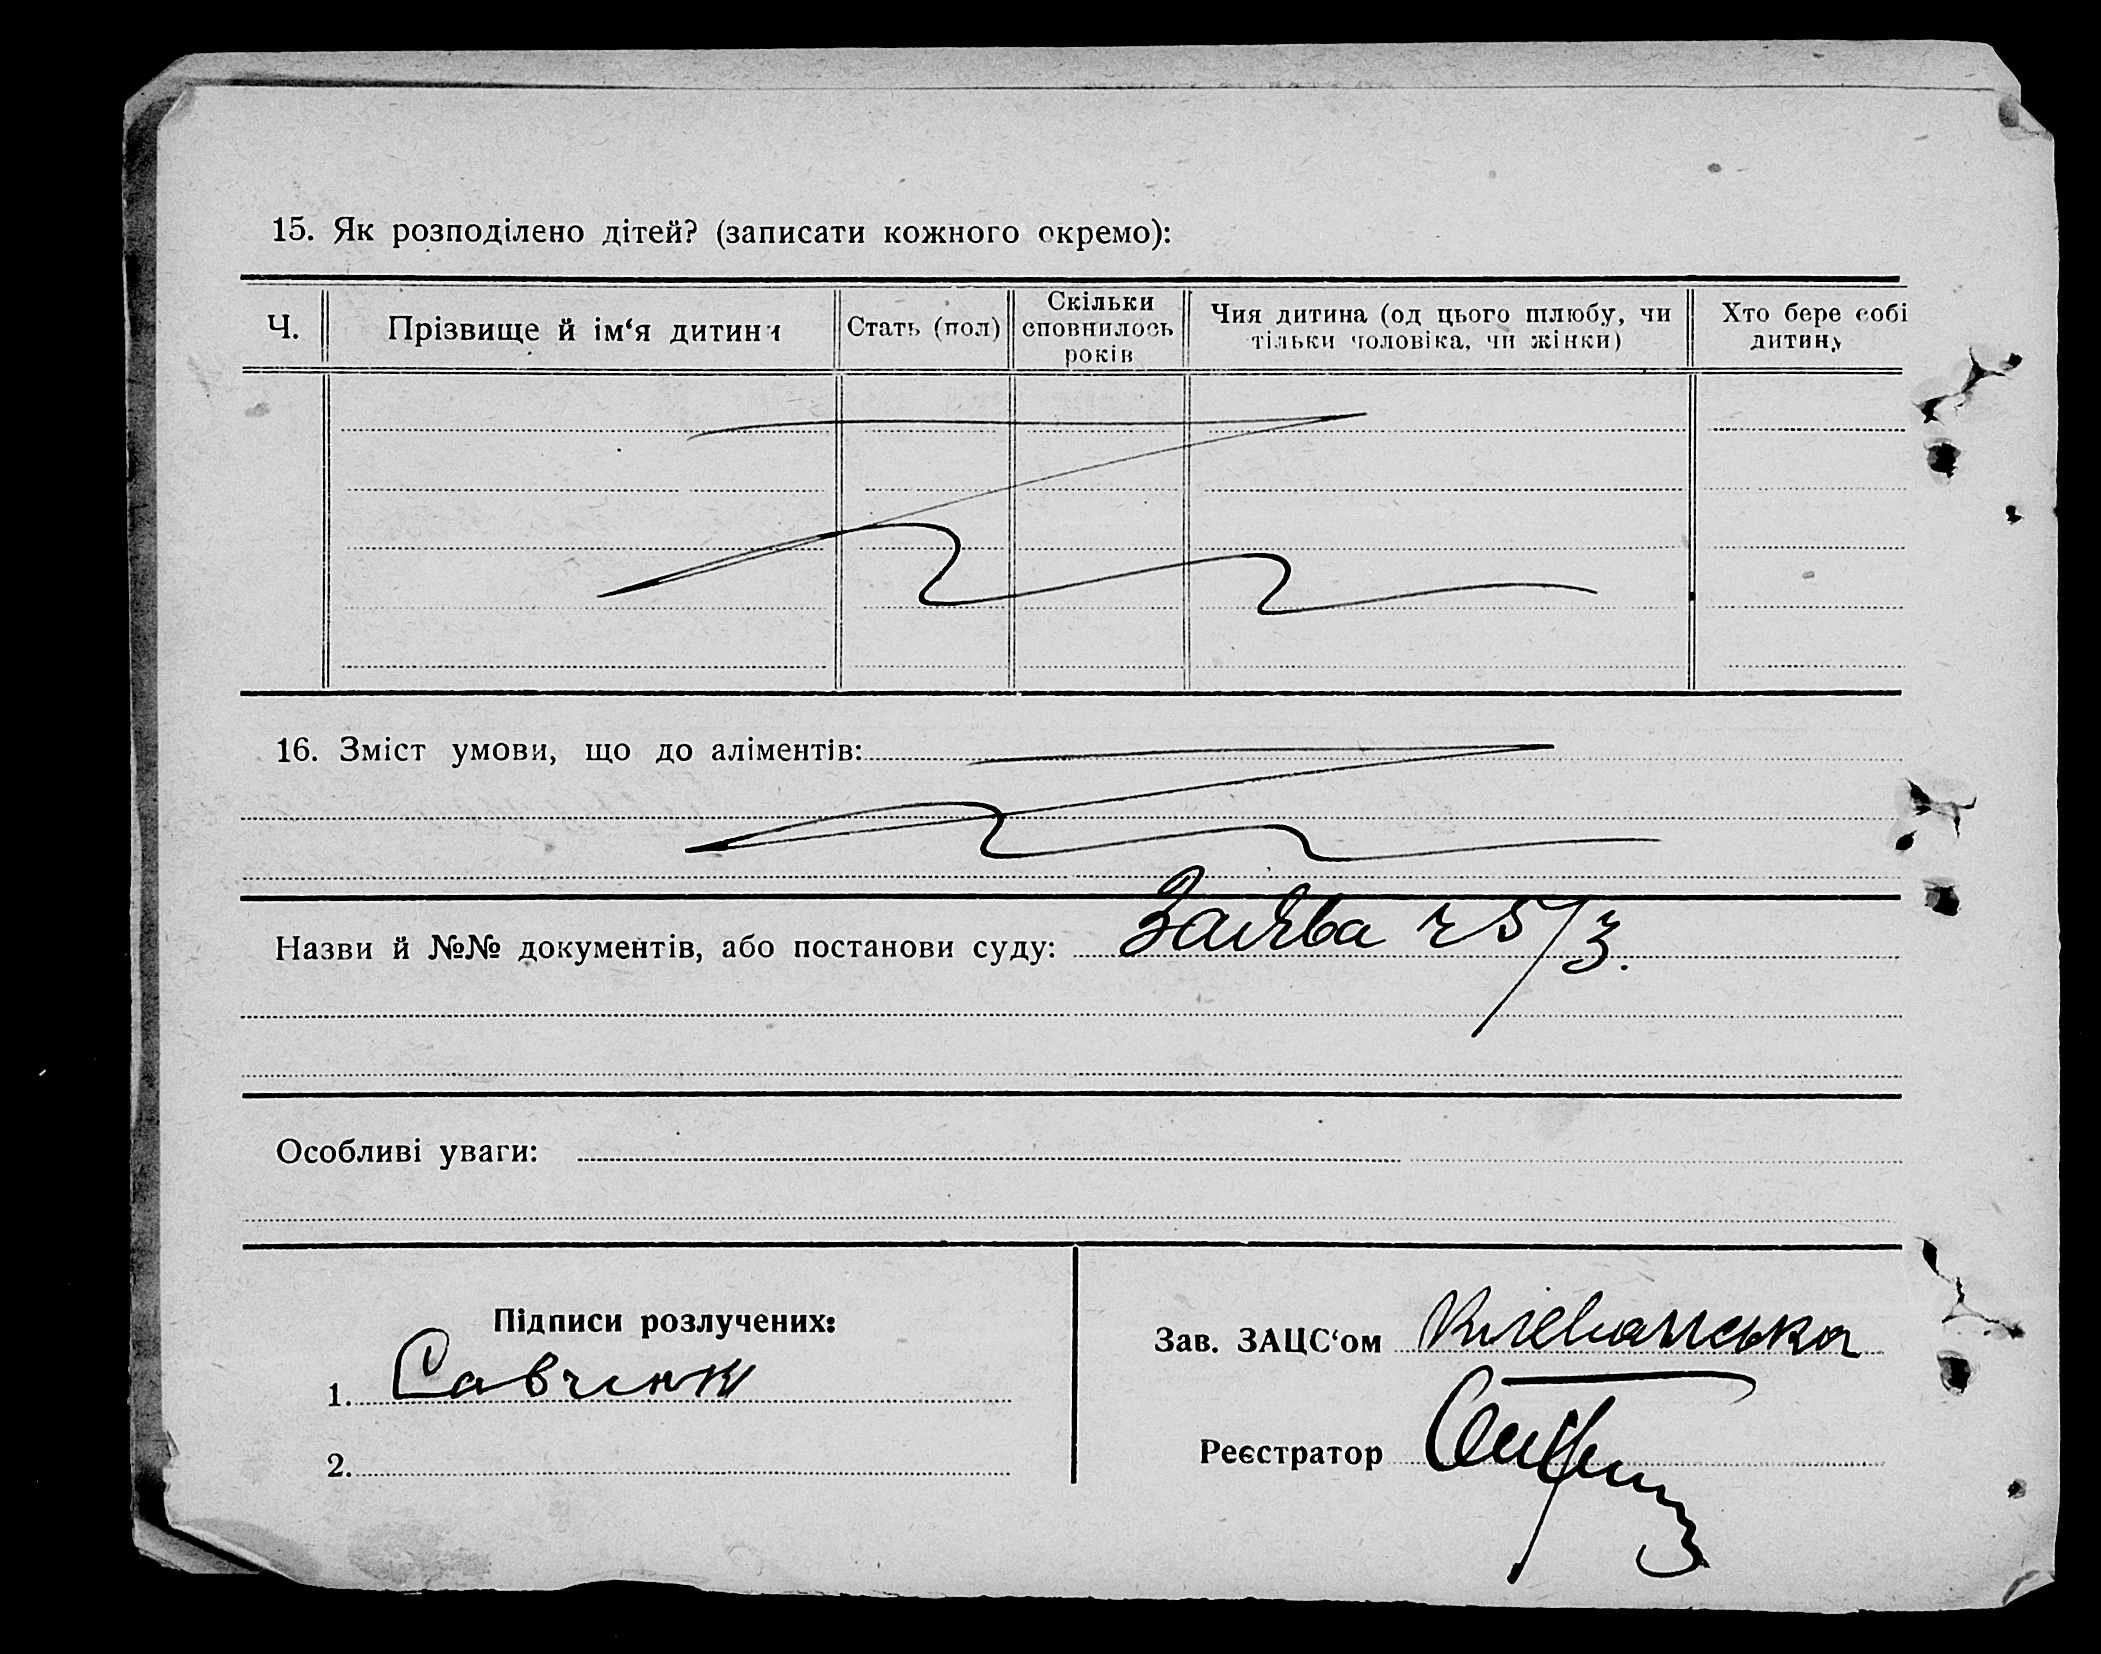 15. Як розподілено дітей? (записати кожного окремо):
Ч.
Прізвище й ім‘я дитини
Стать (пол)
Скільки
сповнилось
років
Чия дитина (од цього шлюбу, чи
тільки чоловіка, чи жінки)
Хто бере собі
дитину
16. Зміст умови, що до аліментів:
Назви й №№ документів, або постанови суду: Заява ч 5/3.
Особливі уваги:
Підписи розлучених:
1. Савченк
2.
Зав. ЗАЦС‘ом
Реєстратор